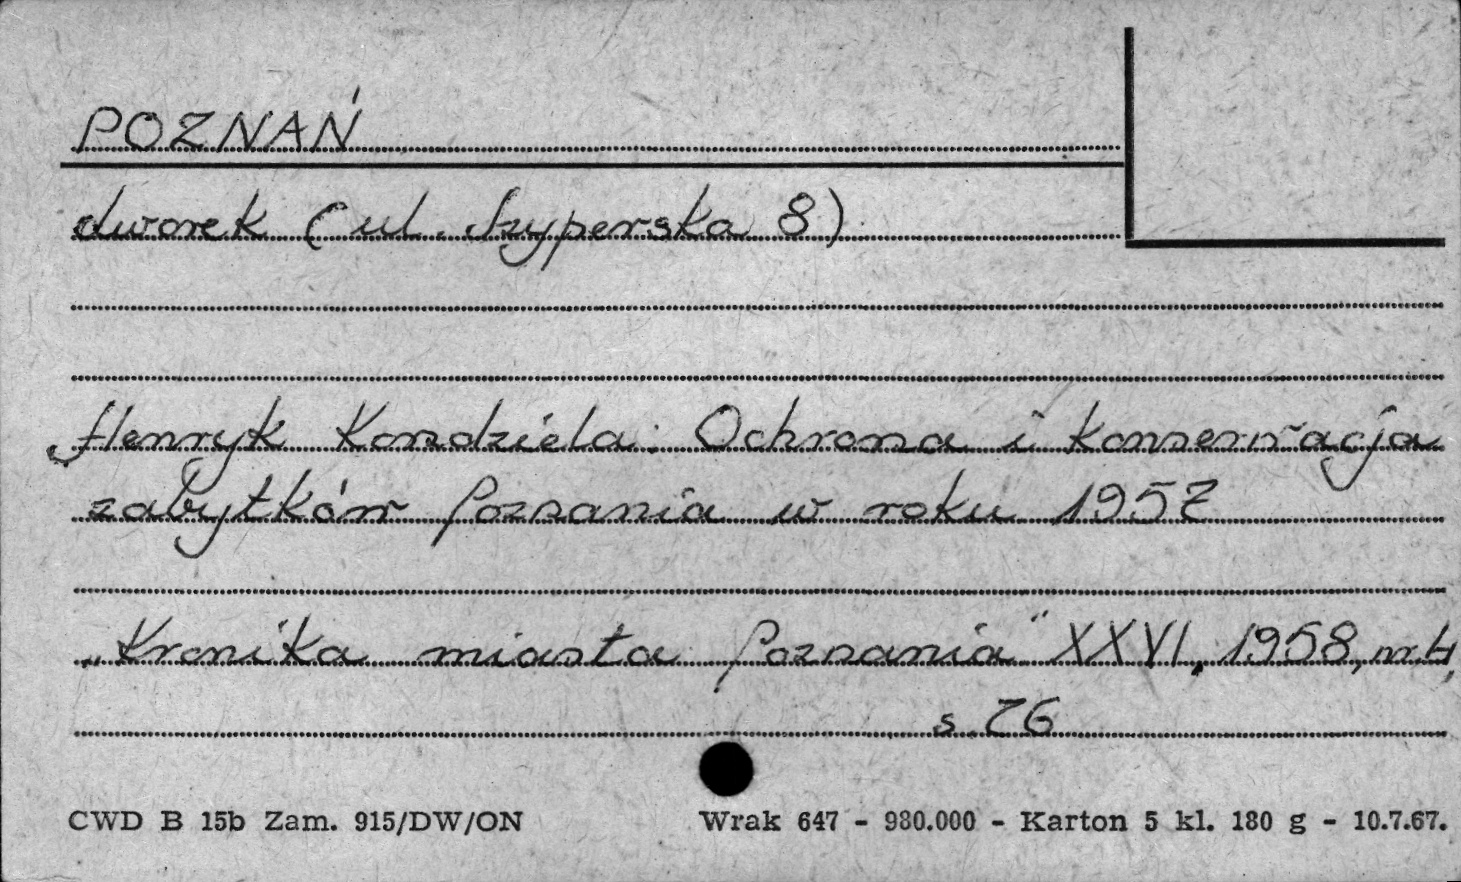 POZNAŃ
dworek (ul. Szyperska 8)
Henryk Kondziela: Ochrona i konserwacja
zabytków Poznania w roku 1957
„Kronika miasta Poznania" XXVI, 1958, nr 4,
s. 76
CWD B 15b Zam. 915/DW/ON Wrak 647 - 980.000 - Karton 5 kl. 180 g - 10.7.67.